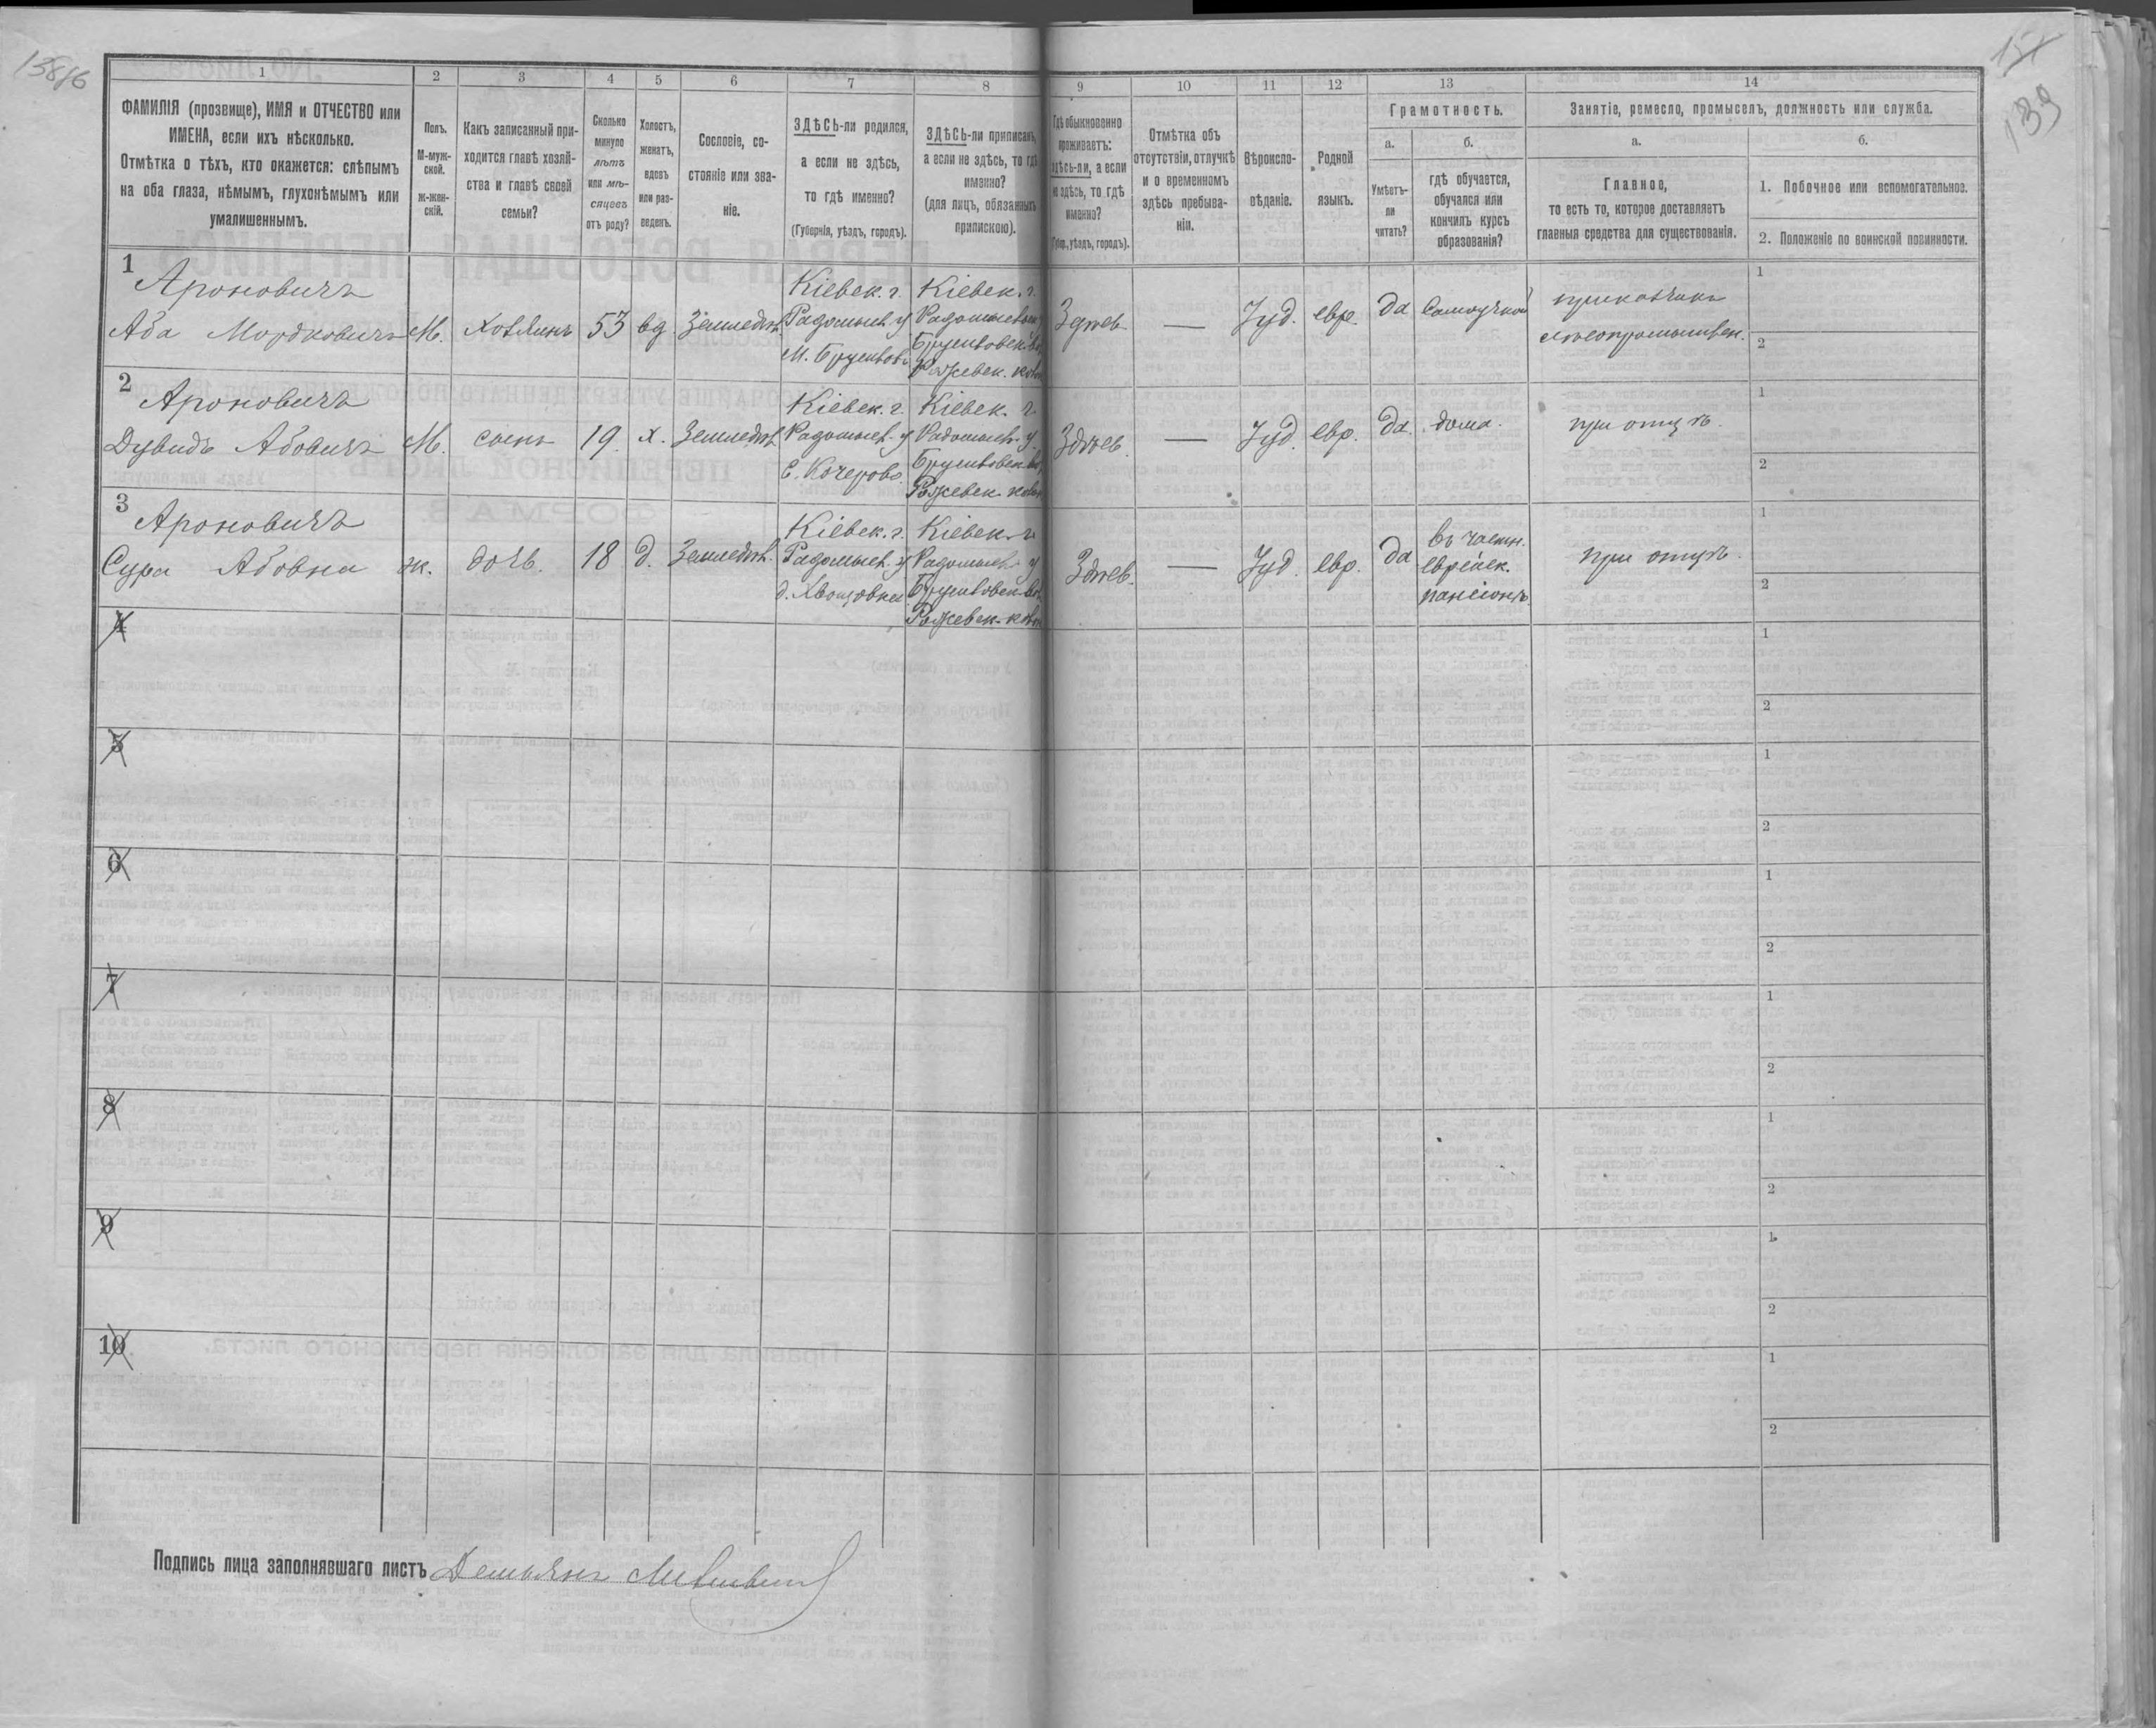 138 об
157
139
1
2
3
4
5
6
7
8
9
10
11
12
13
14
ФАМИЛІЯ (прозвище), ИМЯ и ОТЧЕСТВО или
ИМЕНА, если ихъ нѣсколько.
Отмѣтка о тѣхъ, кто окажется: слѣпымъ
на оба глаза, нѣмымъ, глухонѣмымъ или
умалишеннымъ.
Полъ.
М-муж-
ской.
ж-жен-
скій.
Какъ записанный при-
ходится главѣ хозяй-
ства и главѣ своей
семьи?
Сколько
минуло
лѣтъ
или мѣ-
сяцевъ
отъ роду?
Холостъ,
женатъ,
вдовъ
или раз-
веденъ.
Сословіе, со-
стояніе или зва-
ніе.
ЗДѢСЬ-ли родился,
а если не здѣсь,
то гдѣ именно?
(Губернія, уѣздъ, городъ).
ЗДѢСЬ-ли приписанъ,
а если не здѣсь, то гдѣ
именно?
(для лицъ, обязанныхъ
припискою).
Гдѣ обыкновенно
проживаетъ:
здѣсь-ли, а если
не здѣсь, то гдѣ
именно?
(Губ., уѣздъ, городъ).
Отмѣтка объ
отсутствіи, отлучкѣ
и о временномъ
здѣсь пребыва-
ніи.
Вѣроиспо-
вѣданіе.
Родной
языкъ.
Грамотность.
а.
Умѣетъ-
ли
читать?
б.
гдѣ обучается,
обучался или
кончилъ курсъ
образованія?
Занятіе, ремесло, промыселъ, должность или служба.
а.
Главное,
то есть то, которое доставляетъ
главныя средства для существованія.
б.
1. Побочное или вспомогательное.
2. Положеніе по воинской повинности.
1
Ароновичъ
Аба Мордковичъ
М.
хозяинъ
53
вд.
Земледѣл.
Кіевск. г.
Радомысл. у
м. Брусиловъ
Кіевск. г.
Радомысльск. у
Брусиловск. вол
Рожевск. колон
Здѣсь
—
Іуд.
евр.
да
самоучкой
прикащикъ
лѣсопромышлен.
1
2
2
Ароновичъ
Дувидъ Абовичъ
М.
сынъ
19.
х.
Земледѣл.
Кіевск. г.
Радомысл. у
с. Кочерово
Кіевск. г.
Радомысл. у
Брусиловск. вол
Рожевск. колон
Здѣсь.
—
Іуд.
евр.
да.
дома.
при отцѣ.
1
2
3
Ароновичъ
Сура Абовна
ж.
дочь.
18
д.
Земледѣл.
Кіевск. г.
Радомысл. у
д. Хвощовка
Кіевск. г.
Радомысл. у
Брусиловск. вол
Рожевск. колон
Здѣсь.
—
Іуд.
евр.
да
въ частн.
еврейск.
пансіонѣ
при отцѣ.
1
2
4
1
2
5
1
2
6
1
2
7
1
2
8
1
2
9
1
2
10
1
2
Подпись лица заполнявшаго листъ Демьянъ Литвин